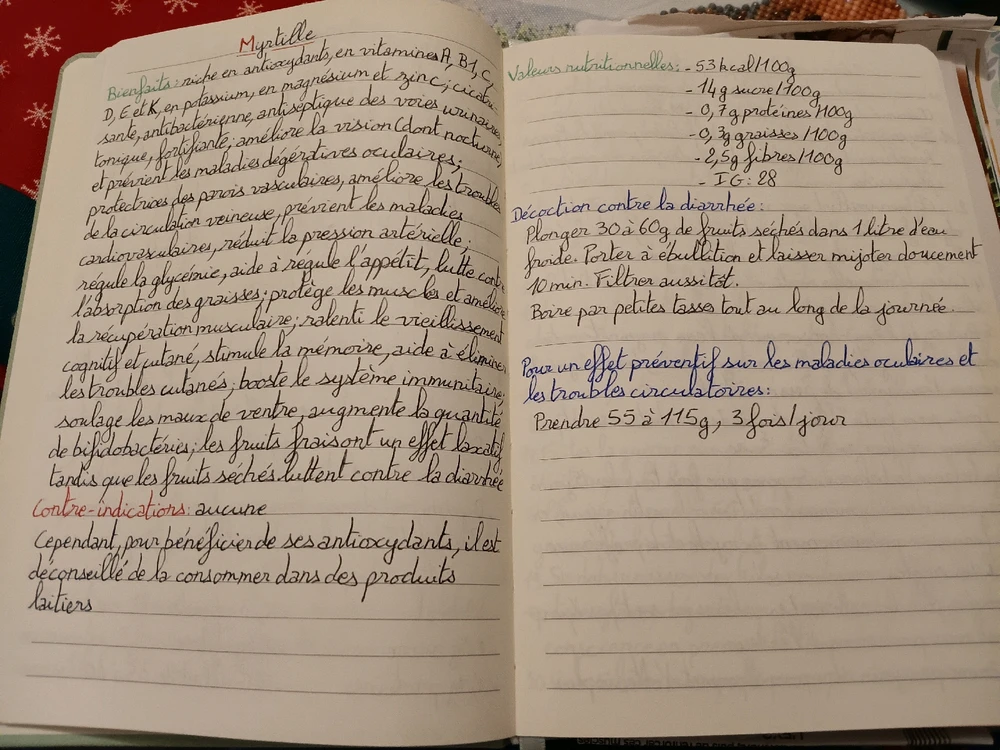 Myrtille
Bienfaits : riche en antioxydants, en vitamines A, B1, C,
D, E et K, en potassium, en magnésium et zinc ; cicatri
sante, antibactérienne, antiséptique des voies urinaires,
tonique, fortifiante ; améliore la vision (dont nocturne)
et prévient les maladies dégératives oculaires ;
protectrices des parois vasculaires, améliore les troubles
de la circulation veineuse, prévient les maladies
cardiovasculaires, réduit la pression artérielle ;
régule la glycémie, aide à régule l'appétit, lutte contre
l'absorption des graisses ; protège les muscles et améliore
la récupération musculaire ; ralenti le vieillissement
cognitif et cutané, stimule la mémoire, aide à éliminer
les troubles cutanés ; booste le système immunitaire,
soulage les maux de ventre, augmente la quantité
de bifidobactéries ; les fruits frais ont un effet laxatif
tandis que les fruits séchés luttent contre la diarrhée
Contre-indications : aucune
Cependant, pour bénéficier de ses antioxydants, il est
déconseillé de la consommer dans des produits
laitiers
Valeurs nutritionnelles : - 53 kcal/100g
- 14g sucre/100g
- 0,7g protéines/100g
- 0,3g graisses/100g
- 2,5g fibres/100g
- IG : 28
Décoction contre la diarrhée :
Plonger 30 à 60g de fruits séchés dans 1 litre d'eau
froide. Porter à ébullition et laisser mijoter doucement
10 min. Filtrer aussitôt.
Boire par petites tasses tout au long de la journée.
Pour un effet préventif sur les maladies oculaires et
les troubles circulatoires :
Prendre 55 à 115g, 3 fois/jour